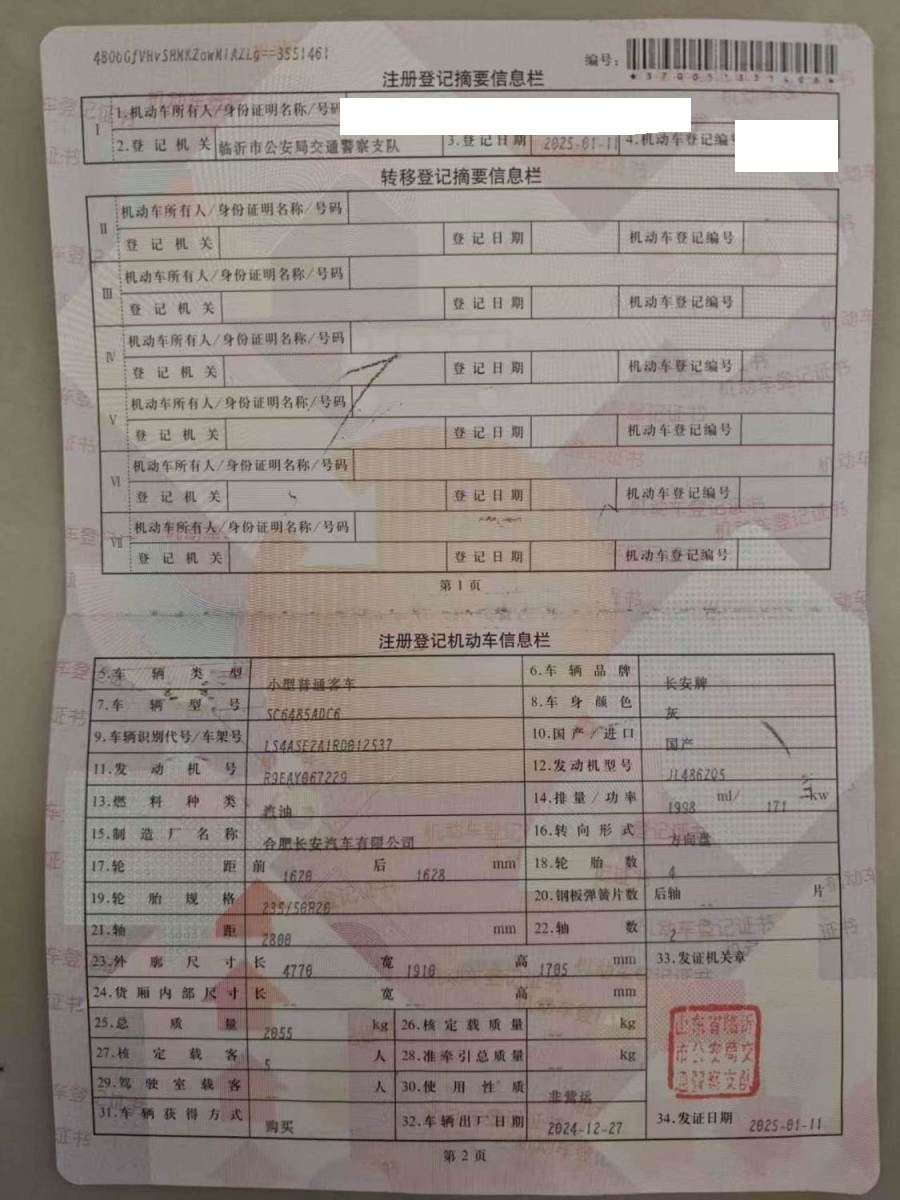 4B0bGfVHvSHMKZowMiAZLg==3551461
编号：
注册登记摘要信息栏
I 1.机动车所有人/身份证明名称/号码
2.登记机关 临沂市公安局交通警察支队 3.登记日期 2025-01-11 4.机动车登记编号
转移登记摘要信息栏
II 机动车所有人/身份证明名称/号码
登记机关 登记日期 机动车登记编号
III 机动车所有人/身份证明名称/号码
登记机关 登记日期 机动车登记编号
IV 机动车所有人/身份证明名称/号码
登记机关 登记日期 机动车登记编号
V 机动车所有人/身份证明名称/号码
登记机关 登记日期 机动车登记编号
VI 机动车所有人/身份证明名称/号码
登记机关 登记日期 机动车登记编号
VII 机动车所有人/身份证明名称/号码
登记机关 登记日期 机动车登记编号
第1页
注册登记机动车信息栏
5.车辆类型 小型普通客车 6.车辆品牌 长安牌
7.车辆型号 SC6485ADC6 8.车身颜色 灰
9.车辆识别代号/车架号 LS4ASE2A1RD812537 10.国产/进口 国产
11.发动机号 R9EAY067229 12.发动机型号 JL486ZQ5
13.燃料种类 汽油 14.排量/功率 1998 ml/ 171 kw
15.制造厂名称 合肥长安汽车有限公司 16.转向形式 方向盘
17.轮距 前 1620 后 1628 mm 18.轮胎数 4
19.轮胎规格 235/50R20 20.钢板弹簧片数 后轴 -- 片
21.轴距 2800 mm 22.轴数 2
23.外廓尺寸 长 4770 宽 1910 高 1705 mm 33.发证机关章
24.货厢内部尺寸 长 -- 宽 -- 高 -- mm
25.总质量 2055 kg 26.核定载质量 -- kg
27.核定载客 5 人 28.准牵引总质量 -- kg
29.驾驶室载客 -- 人 30.使用性质 非营运
31.车辆获得方式 购买 32.车辆出厂日期 2024-12-27 34.发证日期 2025-01-11
山东省临沂
市公安局交
通警察支队
第2页